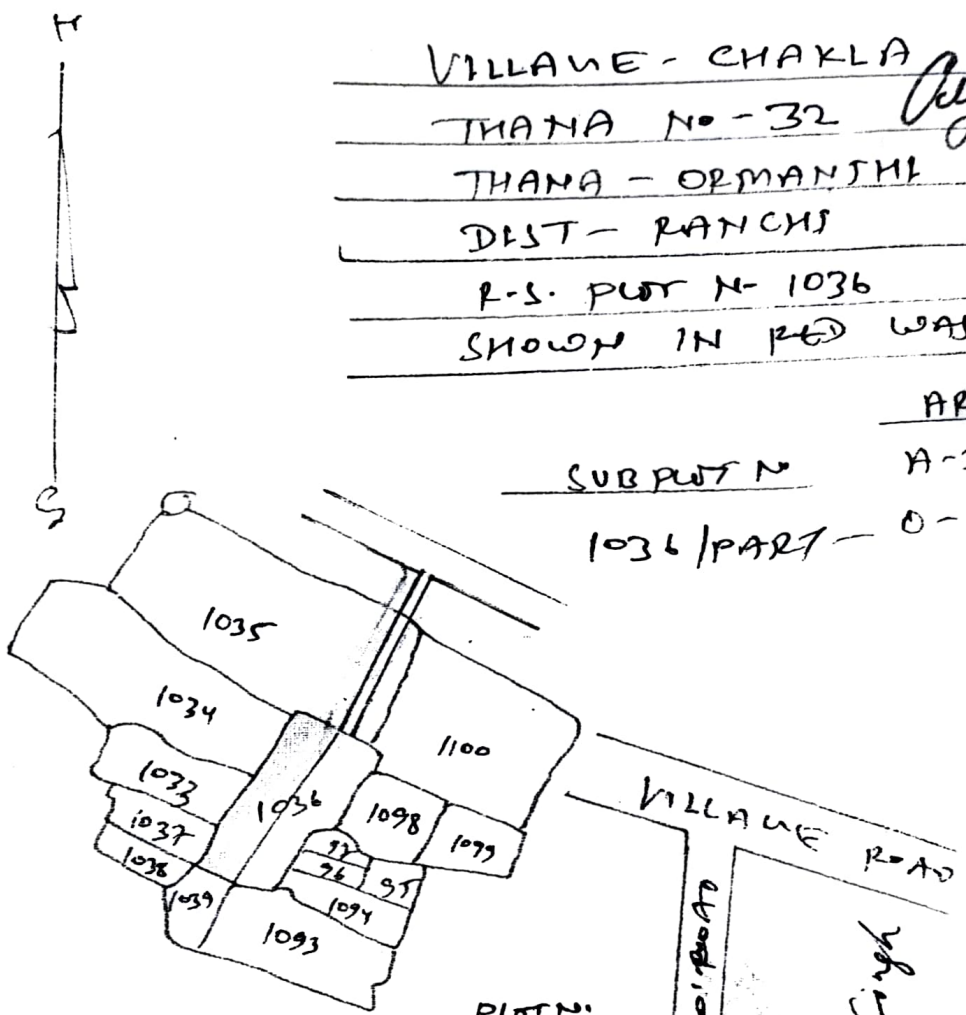 N
VILLAGE - CHAKLA
THANA No - 32
THANA - ORMANJHI
DIST - RANCHI
R.S. PLOT N- 1036
SHOWN IN RED WAS
AR
SUB PLOT N A-
S
1036/PART - 0 -
1035
1034
1100
1033
1036
1037
1098
1099
1038
97
96
95
1039
1094
1093
VILLAGE ROAD
ROAD
PLOT N.